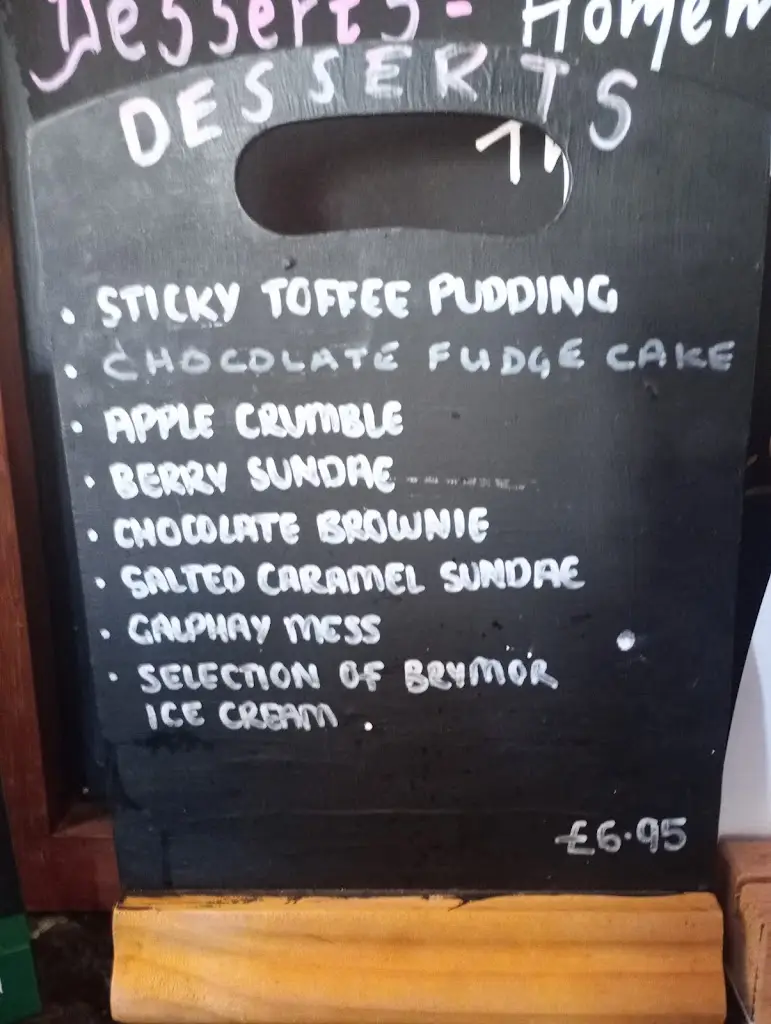 Desserts - Homem
DESSERTS
• STICKY TOFFEE PUDDING
• CHOCOLATE FUDGE CAKE
• APPLE CRUMBLE
• BERRY SUNDAE
• CHOCOLATE BROWNIE
• SALTED CARAMEL SUNDAE
• GALPHAY MESS
• SELECTION OF BRYMOR
ICE CREAM
£6.95